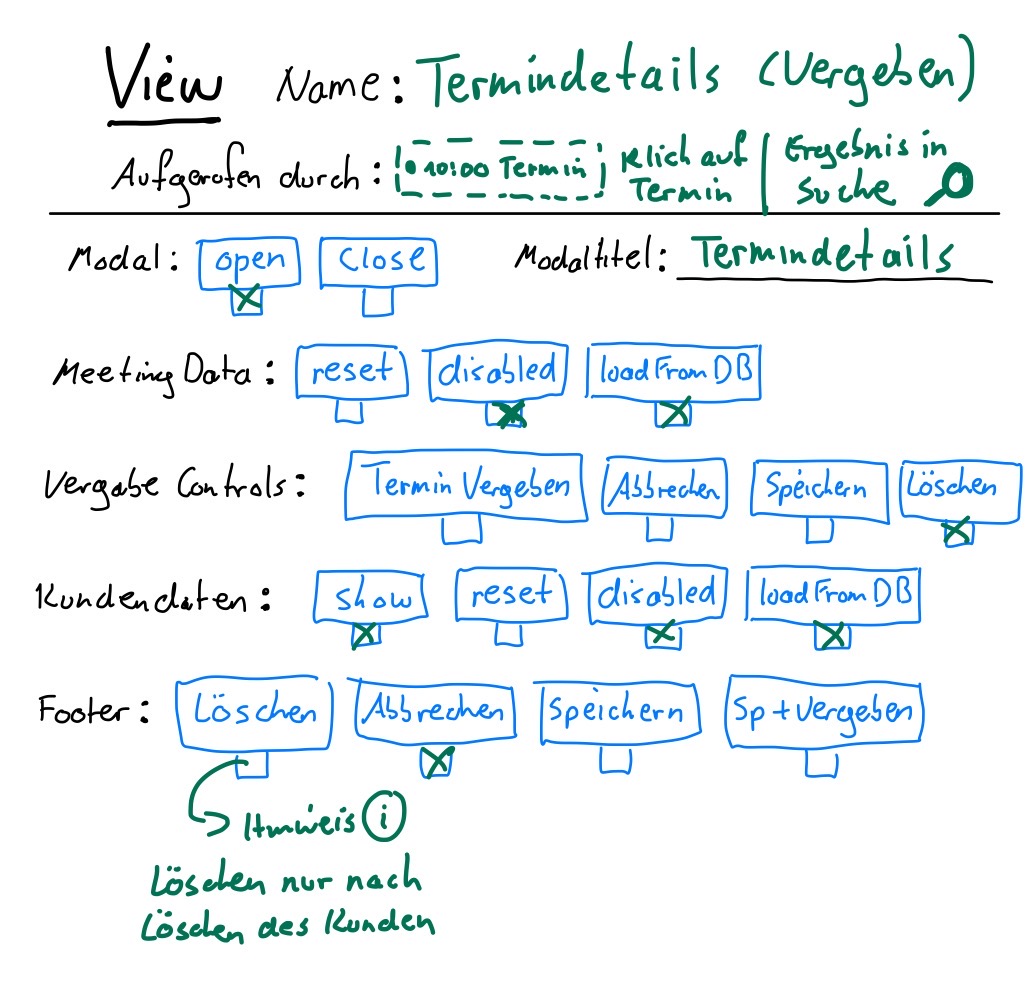 View Name: Termindetails (Vergeben)
Aufgerufen durch: 10:00 Termin Klick auf Termin | Ergebnis in Suche
Modal: open close Modaltitel: Termindetails
Meeting Data: reset disabled loadFromDB
Vergabe Controls: Termin Vergeben Abbrechen Speichern Löschen
Kundendaten: show reset disabled loadFromDB
Footer: Löschen Abbrechen Speichern Sp + Vergeben
Hinweis i
Löschen nur nach
Löschen des Kunden